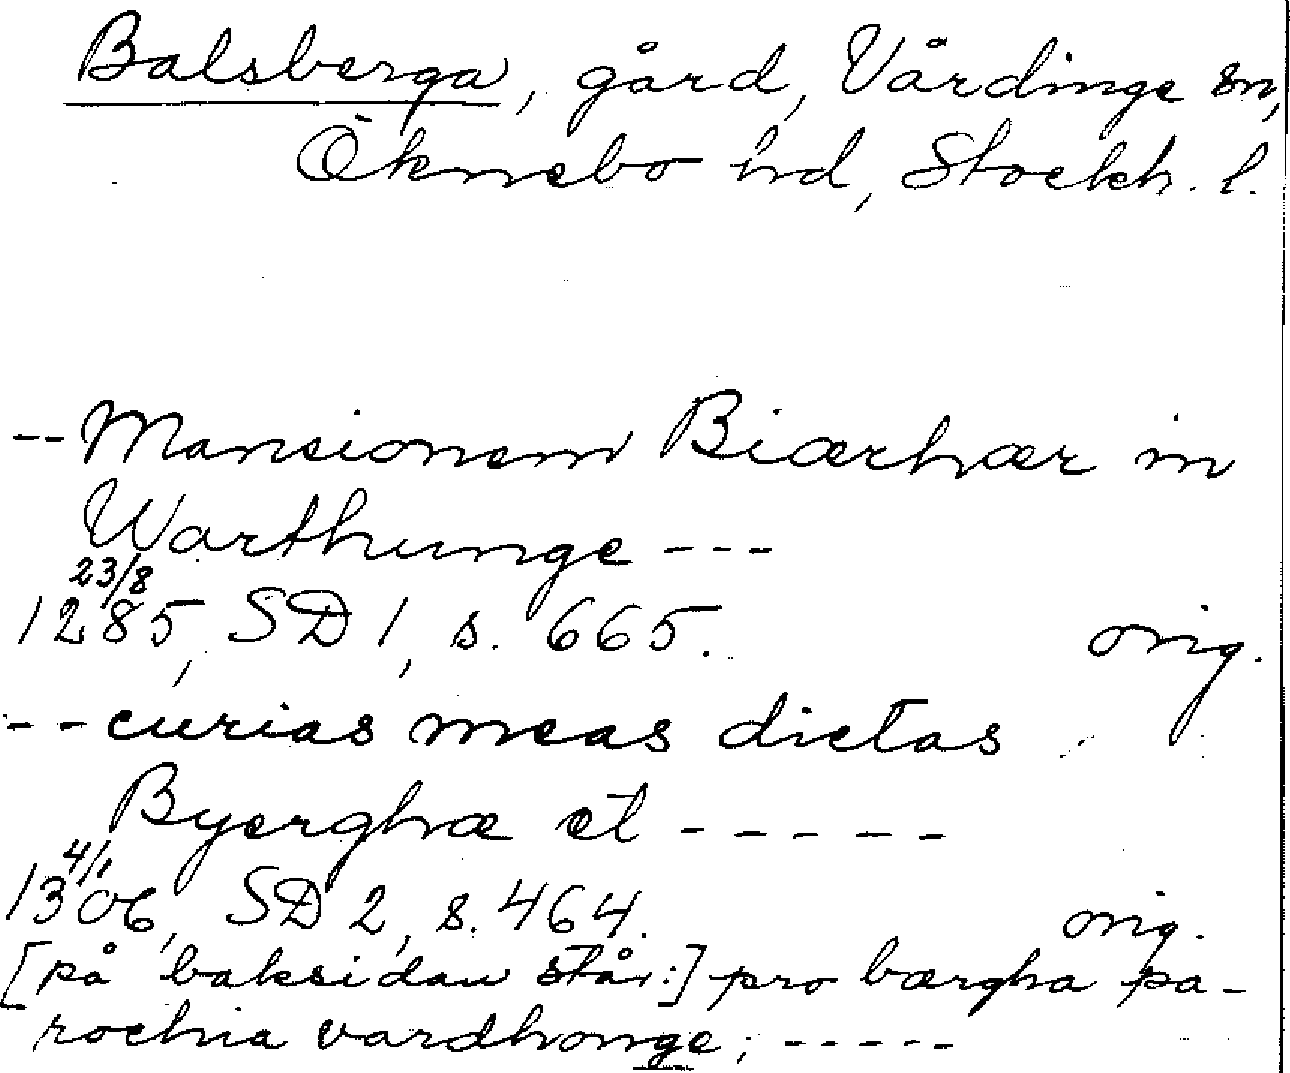 Balsberga, gård, Vårdinge sn,
Öknebo hd, Stockh. l.
-- Mansionem Biærhær in
Warthunge ---
23/8
1285, SD 1, s. 665. orig.
-- curias meas dictas
Byerghæ et -----
4/1
1306, SD 2, s. 464. orig.
[på baksidan står:] pro bærgha pa-
rochia vardhonge; -----